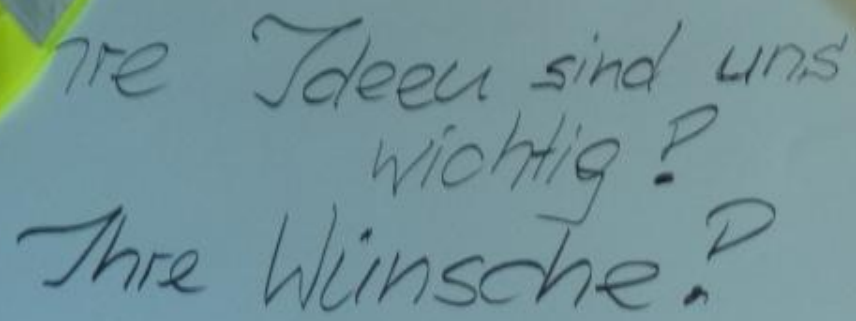 hre Ideen sind uns
wichtig?
Ihre Wünsche?